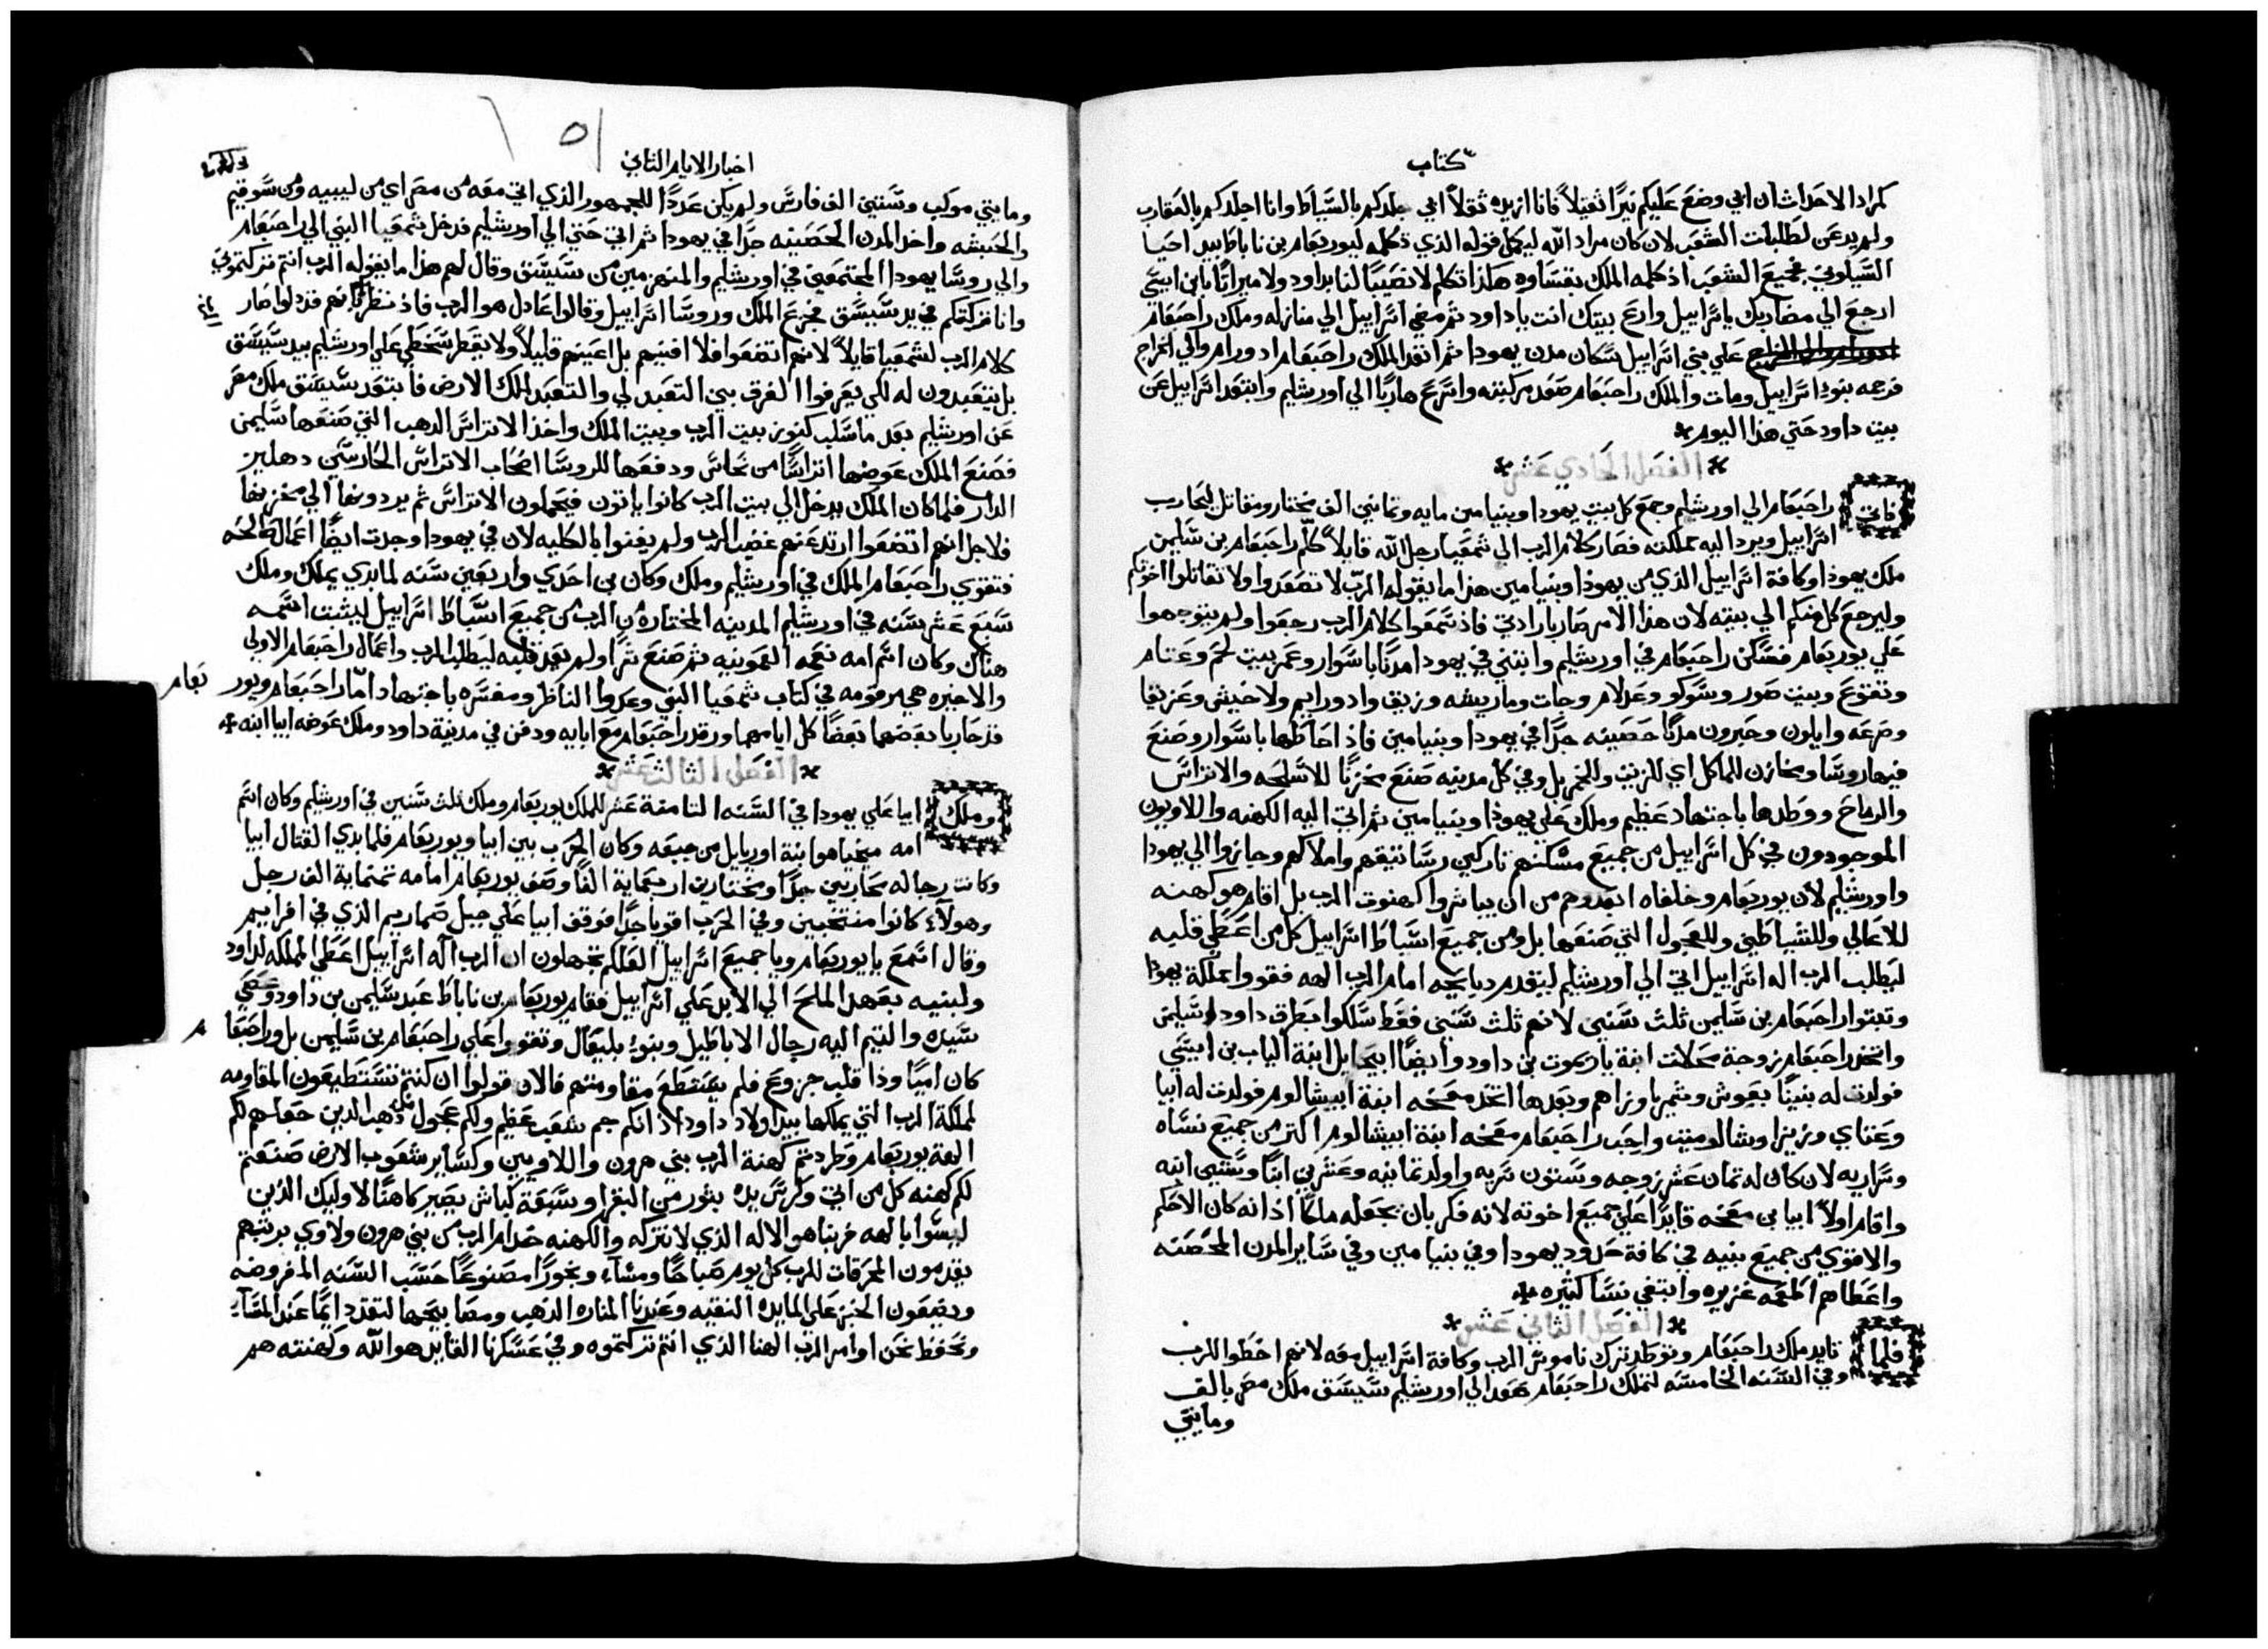 كتاب
كمراد الاحداث ان ابي وضع عليكم نيرًا ثقيلاً فانا ازيده ثقلاً ابي جلدكم بالسياط وانا اجلدكم بالعقارب
ولم يدعن لطلبات الشعب لان كان مراد الله ليكمل قوله الذي تكلمه ليوربعام بن ناباط بيد احيا
السيلوني فجميع الشعب اذ كلمه الملك بقساوه هكذا تكلم لا نصيبًا لنا بداود ولا ميراثًا بابن ايسي
ارجع الي مضاربك يا اسراييل وارع بيتك انت يا داود ثم مضي اسراييل الي منازله وملك راحبعام
علي بني اسراييل سكان مدن يهودا ثم انفد الملك راحبعام ادورام والي الخراج
فرجمه بنو اسراييل ومات والملك راحبعام صعد مركبته واسرع هاربًا الي اورشليم وابتعد اسراييل عن
بيت داود حتي هذا اليوم
الفصل الحادي عشر
فاتي راحبعام الي اورشليم وجمع كل بيت يهودا وبنيامين مايه وثمانين الف مختار ومقاتل ليحارب
اسراييل ويرد اليه مملكته فصار كلام الرب الي شمعيا رجل الله قايلاً كلّم راحبعام بن سليمن
ملك يهودا وكافة اسراييل الذي من يهودا وبنيامين هذا ما يقوله الرب لا تصعدوا ولا تقاتلوا اخوتكم
وليرجع كل منكم الي بيته لان هذا الامر صار بارادتي فاذ سمعوا كلام الرب رجعوا ولم يتوجهوا
علي يوربعام فسكن راحبعام في اورشليم وابتني في يهودا مدنًا باسوار وعمر بيت لحم وعتام
وتقوع وبيت صور وسوكو وعدلام وجات وماريشه وزيق وادورايم ولاخيش وعزيقا
وصرعه وايلون وحبرون مدنًا حصينه جدًا في يهودا وبنيامين فاذ احاطها باسوار وصنع
فيها روسا ومخازن للماكل اي للزيت والخمر بل وفي كل مدينه صنع مخزنًا للاسلحه والاتراس
والرماح ووطدها باجتهاد عظيم وملك علي يهودا وبنيامين ثم اتي اليه الكهنه واللاويون
الموجودون في كل اسراييل من جميع مسكنهم تاركين رساتيقهم واملاكهم وجازوا الي يهودا
واورشليم لان يوربعام وخلفاه ابعدوهم من ان يباشروا كهنوت الرب بل اقام هو كهنه
للاعالي وللشياطين وللعجول التي صنعها بل ومن جميع اسباط اسراييل كل من اعطي قلبه
ليطلب الرب اله اسراييل اتي الي اورشليم ليقدم دبايحه امام الرب الهه فقووا مملكة يهودا
وثبتوا راحبعام بن سليمن ثلث سنين لانهم ثلث سنين فقط سلكوا بطرق داود وسليمن
واتخد راحبعام زوجة محلات ابنة ياريموت بن داود وايضًا ابيحايل ابنة الياب بن ايسي
فولدت له بنينًا يعوش وشمريا وزاهم وبعدها اتخد معخه ابنة ابيشالوم فولدت له ابيا
وعتاي وزيزا وشالوميت واحب راحبعام معخه ابنة ابيشالوم اكتر من جميع نساه
وسراريه لان كان له تمان عشر زوجه وستون سريه واولد تمانيه وعشرين ابنًا وستين ابنه
واقام اولاً ابيا بن معخه قايدًا علي جميع اخوته لانه فكر بان يجعله ملكًا اذ انه كان الاحكم
والاقوي من جميع بنيه في كافة حدود يهودا وفي بنيامين وفي ساير المدن المحصنه
واعطاهم اطعمه غزيره وابتغي نسا كثيره
الفصل الثاني عشر
فلما تايد ملك راحبعام وتوطد ترك ناموس الرب وكافة اسراييل معه لانهم اخطوا للرب
وفي السنه الخامسه لتملك راحبعام صعد الي اورشليم سيسق ملك مصر بالف
ومايتي
اخبار الايام التاني
ومايتي موكب وستين الف فارس ولم يكن عددًا للجمهور الذي اتي معه من مصر اي من ليبيه ومن سوقيم
والحبشه واخد المدن الحصينه جدًا في يهودا ثم اتي حتي الي اورشليم فدخل شمعيا النبي الي راحبعام
والي روسا يهودا المجتمعين في اورشليم والمنهزمين من سيسق وقال لهم هذا ما يقوله الرب انتم تركتموني
وانا تركتكم في يد سيسق فجزع الملك وروسا اسراييل وقالوا عادل هو الرب فاذ نظر الرب انهم قد دلوا صار
كلام الرب لشمعيا قايلاً لانهم اتضعوا فلا افنيهم بل اعينهم قليلاً ولا يقطر سخطي علي اورشليم بيد سيسق
بل يتعبدون له لكي يعرفوا الفرق بين التعبد لي والتعبد لملك الارض فابتعد سيسق ملك مصر
عن اورشليم بعد ما سلب كنوز بيت الرب وبيت الملك واخذ الاتراس الدهب التي صنعها سليمن
فصنع الملك عوضها اتراسًا من نحاس ودفعها للروسا اصحاب الاتراس الحارسين دهليز
الدار فلما كان الملك يدخل الي بيت الرب كانوا ياتون فيحملون الاتراس ثم يردونها الي مخزنها
فلاجل انهم اتضعوا ارتد عنهم غضب الرب ولم يفنوا بالكليه لان في يهودا وجدت ايضًا اعمال صالحه
فتقوي راحبعام الملك في اورشليم وملك وكان بن احدي واربعين سنه لما بدي يملك وملك
سبع عشر سنه في اورشليم المدينه المختاره من الرب من جميع اسباط اسراييل ليثبت اسمه
هناك وكان اسم امه نعمه العمونيه ثم صنع شرًا ولم يعد قلبه ليطلب الرب واعمال راحبعام الاولي
والاخيره هي مرقومه في كتاب شمعيا النبي وعدوا الناظر ومفسره باجتهاد امّا راحبعام ويور بعام
قد حاربا بعضهما بعضًا كل ايامهما ورقد راحبعام مع ابايه ودفن في مدينة داود وملك عوضه ابيا ابنه
الفصل الثالث عشر
وملك ابيا علي يهودا في السنه الثامنة عشر للملك يوربعام وملك ثلث سنين في اورشليم وكان اسم
امه ميخيا هوابنة اوريايل من جبعه وكان الحرب بين ابيا ويوربعام فلما بدي القتال ابيا
وكانت رجاله محاربين جدًا ومختارين اربعماية الفًا وصف يوربعام امامه تمنماية الف رجل
وهولآء كانوا منتخبين وفي الحرب اقويا جدًا فوقف ابيا علي جبل صماريم الذي في افراييم
وقال اسمع يا يوربعام ويا جميع اسراييل العلكم تجهلون ان الرب اله اسراييل اعطي المملكه لداود
ولبنيه بعهد الملح الي الابد علي اسراييل فقام يوربعام بن ناباط عبد سليمن بن داود وعصي
سيده والتيم اليه رجال الاباطيل وبنو بليعال وتقووا علي راحبعام بن سليمن بل وراحبعام
كان اميًا وذا قلب جزوع فلم يستطع مقاومتهم فالان قولوا ان كنتم تستطيعون المقاومه
لمملكة الرب التي يملكها بيد اولاد داود اذ انكم جم شعب عظيم ولكم عجول من دهب الدين جعلهم لكم
الهة يوربعام وطردتم كهنة الرب بني هرون واللاويين وكساير شعوب الارض صنعتم
لكم كهنه كل من اتي وكرس يده بثور من البقر وسبعة كباش يصير كاهنًا لاوليك الدين
ليسوا بالهه فربنا هو الاله الذي لا نتركه والكهنه خدام الرب من بني هرون ولاوي برتبهم
يقدمون المحرقات للرب كل يوم صباحًا ومسآء وبخورًا مصنوعًا حسب السنه المفروضه
ويضعون الخبز علي المايده النقيه وعندنا المناره الدهب ومصابيحها لتقد دايمًا عند المسآء
ونحفظ نحن اوامر الرب الهنا الذي انتم تركتموه وفي عسكرنا القايد هو الله وكهنته هم